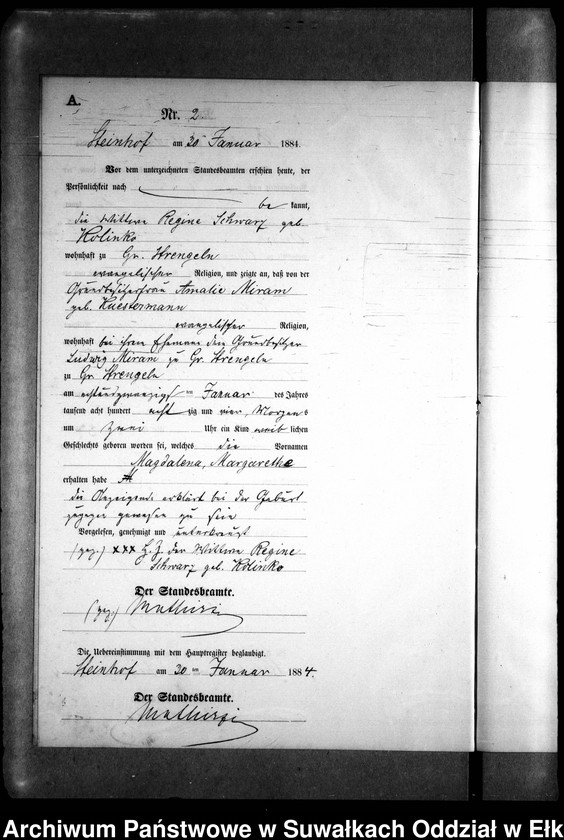 A.
Nr. 2
Steinhof am 20 ten Januar 1884.
Vor dem unterzeichneten Standesbeamten erschien heute, der
Persönlichkeit nach
be kannt,
die Wittwe Regine Schwarz geb.
Kolinko
wohnhaft zu Gr. Strengeln
evangelischer Religion, und zeigte an, daß von der
Grundbesitzerfrau Amalie Miram
geb. Kuestermann
evangelischer Religion,
wohnhaft bei ihrem Ehemann dem Grundbesitzer
Ludwig Miram zu Gr. Strengeln
zu Gr Strengeln
am ten Januar des Jahres
tausend acht hundert acht zig und vier, Morgens
um zwei Uhr ein Kind weib lichen
Geschlechts geboren worden sei, welches die Vornamen
Magdalena, Margarethe
erhalten habe
die Anzeigende erklärt bei der Geburt
zugegen gewesen zu sein
Vorgelesen, genehmigt und unterkreuzt
(gez.) xxx H. Z. der Wittwe Regine
Schwarz geb. Kolinko
Der Standesbeamte.
(gez)
Die Uebereinstimmung mit dem Hauptregister beglaubigt.
Steinhof am 20 ten Januar 1884.
Der Standesbeamte.
Archiwum Państwowe w Suwałkach Oddział w Ełk